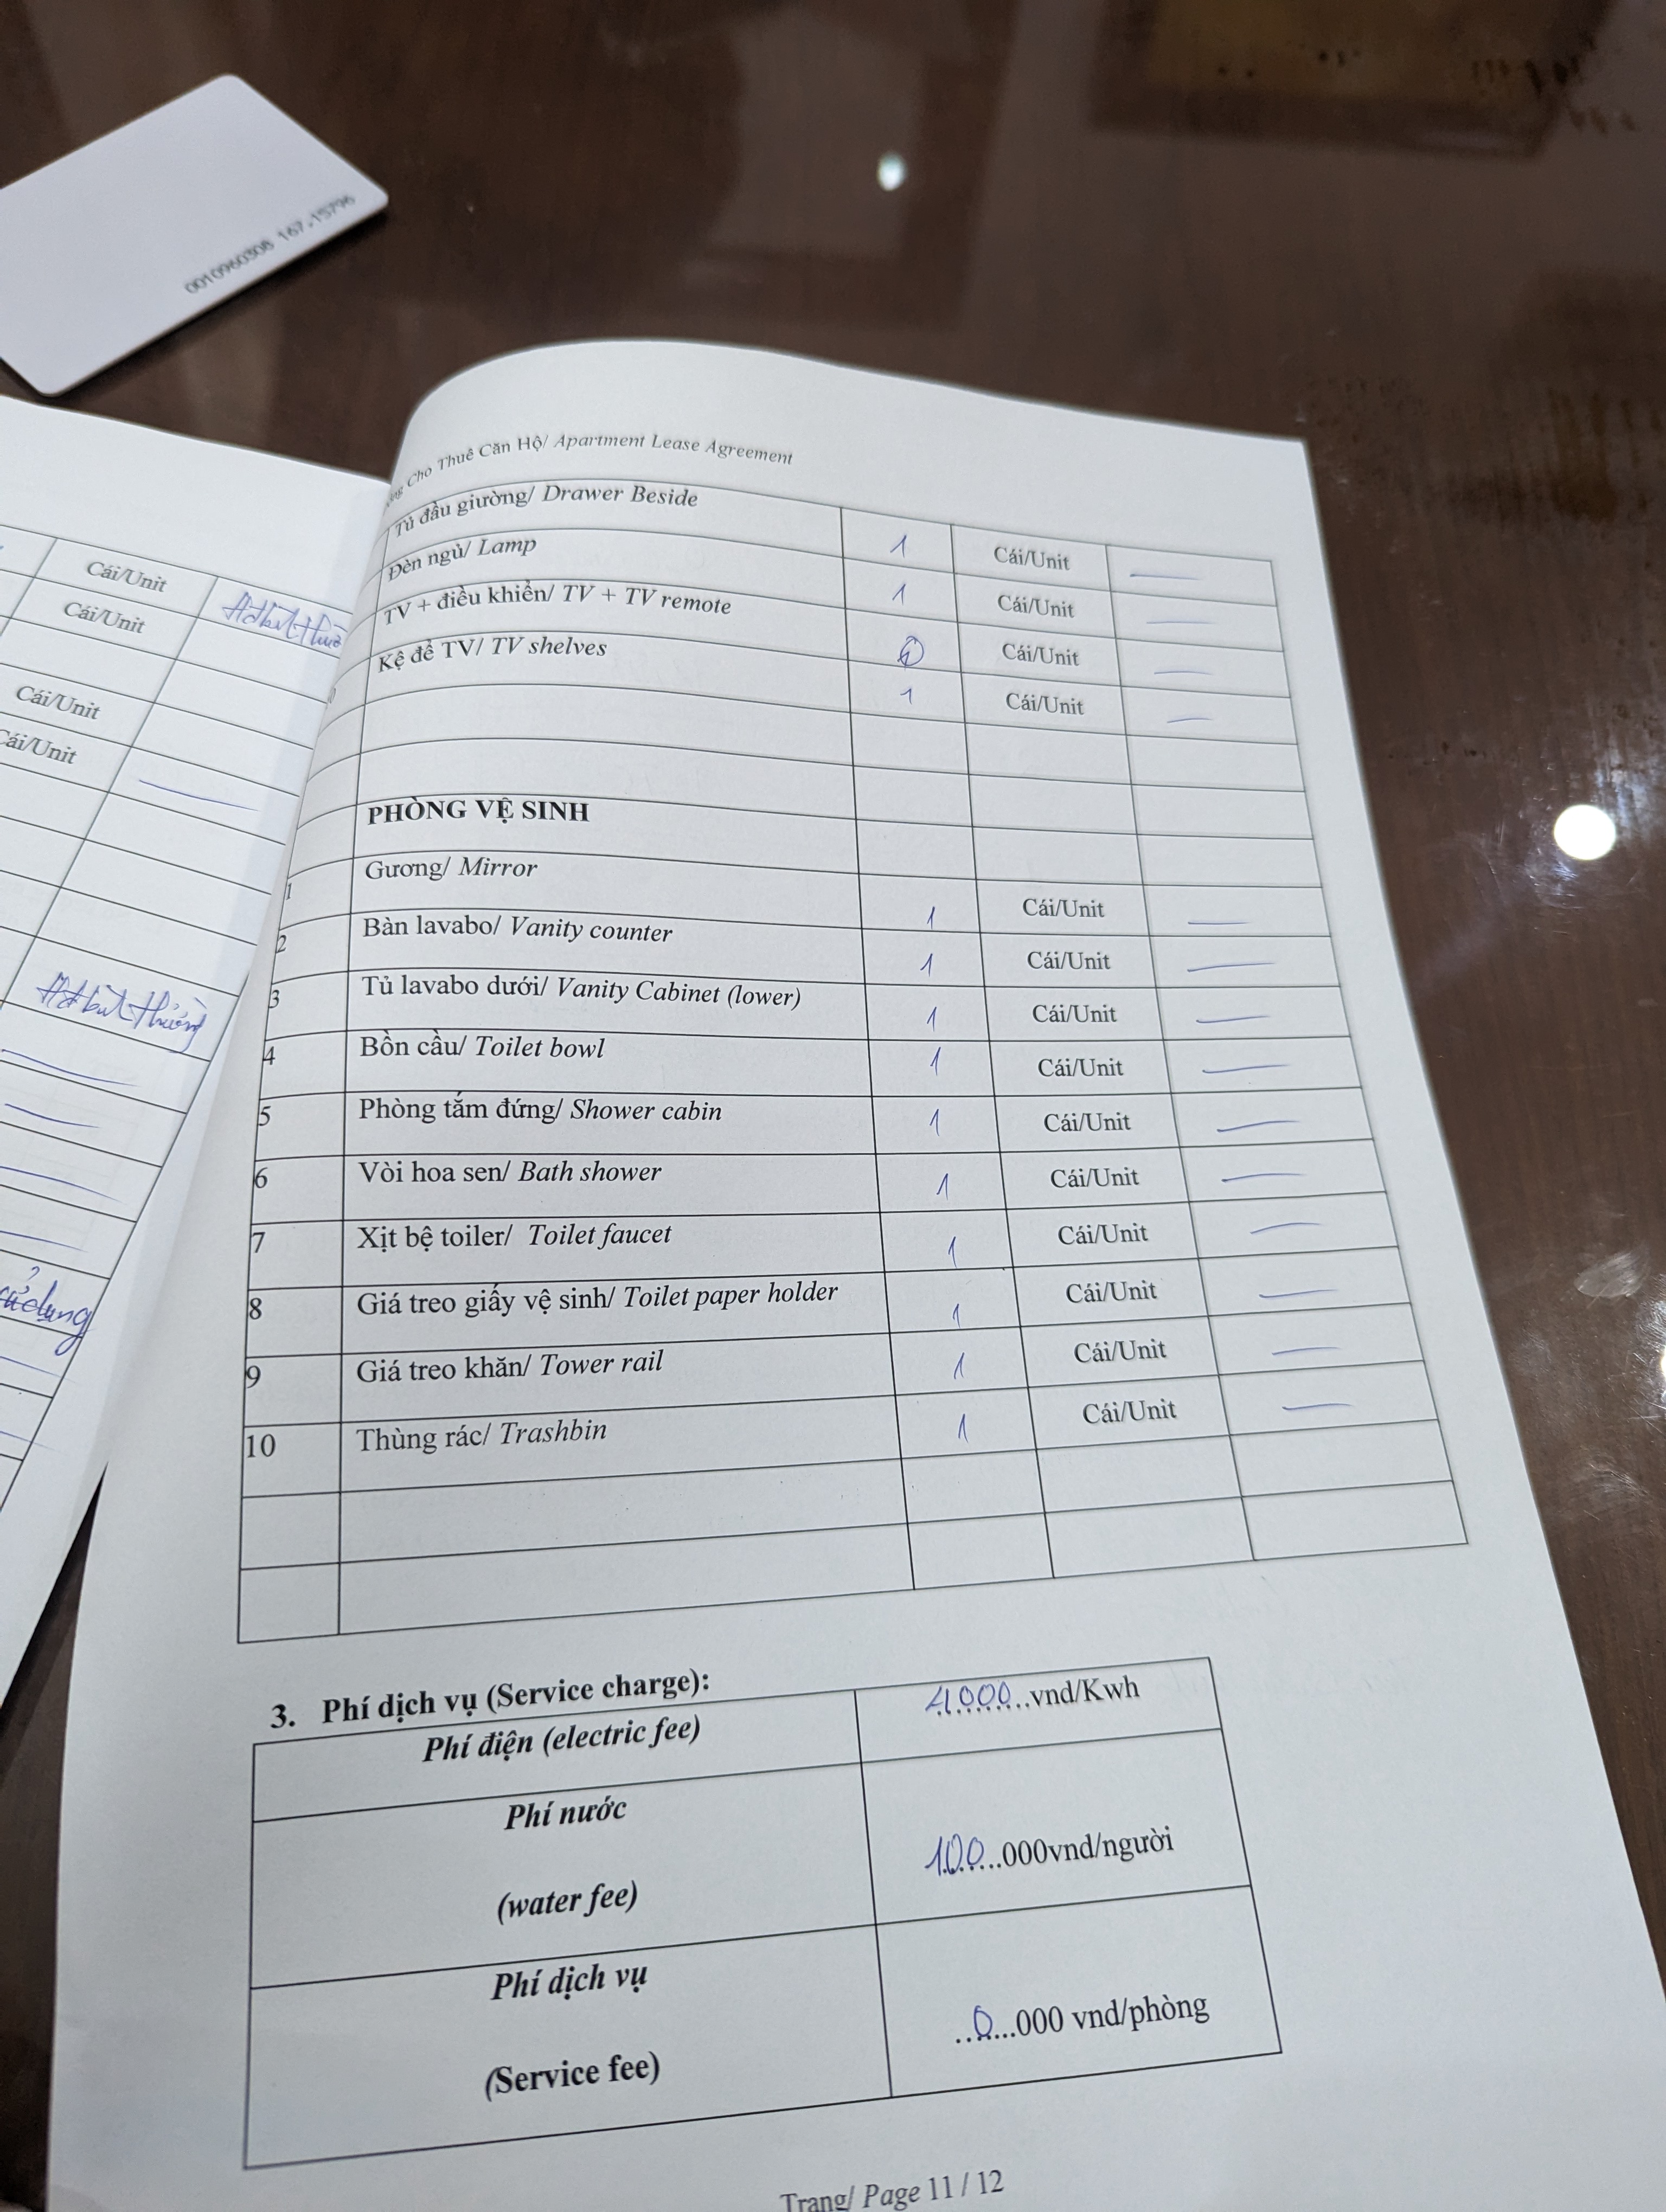 0010960308 167,15796
Cái/Unit
Cái/Unit
Cái/Unit
Cái/Unit
Hđ bình thường
Cho Thuê Căn Hộ/ Apartment Lease Agreement
Tủ đầu giường/ Drawer Beside 1 Cái/Unit —
Đèn ngủ/ Lamp 1 Cái/Unit —
TV + điều khiển/ TV + TV remote 1 Cái/Unit —
Kệ để TV/ TV shelves 1 Cái/Unit —
PHÒNG VỆ SINH
1 Gương/ Mirror 1 Cái/Unit —
2 Bàn lavabo/ Vanity counter 1 Cái/Unit —
3 Tủ lavabo dưới/ Vanity Cabinet (lower) 1 Cái/Unit —
4 Bồn cầu/ Toilet bowl 1 Cái/Unit —
5 Phòng tắm đứng/ Shower cabin 1 Cái/Unit —
6 Vòi hoa sen/ Bath shower 1 Cái/Unit —
7 Xịt bệ toiler/ Toilet faucet 1 Cái/Unit —
8 Giá treo giấy vệ sinh/ Toilet paper holder 1 Cái/Unit —
9 Giá treo khăn/ Tower rail 1 Cái/Unit —
10 Thùng rác/ Trashbin 1 Cái/Unit —
3. Phí dịch vụ (Service charge):
Phí điện (electric fee) 4.000...vnd/Kwh
Phí nước
(water fee)
100...000vnd/người
Phí dịch vụ
(Service fee)
...0...000 vnd/phòng
Trang/ Page 11 / 12